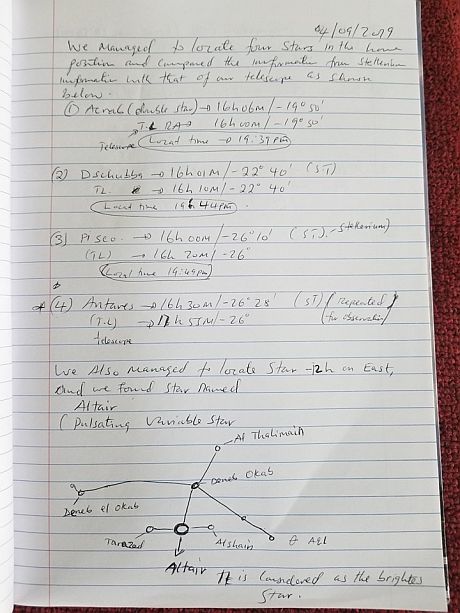 04/09/2019
We Managed to locate four Stars in the home
position and compared the information from Stellarium
information with that of our telescope as shown
below.
(1) Acrab (double star) → 16h06M/-19° 50'
T.L RA → 16h00M/-19° 50'
Telescope
Local time → 19:39PM
(2) Dschubba → 16h01M/-22° 40' (ST)
TL. → 16h10M/-22° 40'
Local time 19h44PM.
(3) PI SCO. → 16h00M/-26° 10' (ST). - Stellarium)
(TL) → 16h 20M/-26°
Local time 19:49PM
* (4) Antares → 16h30M/-26° 28' (ST) (repeated
(T.L) → 17h 53M/-26° for observation)
telescope
We Also Managed to locate Star -12h on East,
and we found Star Named
Altair
(Pulsating Variable Star
Al Thalimain
Deneb Okab
Deneb el Okab
Tarazed
Alshain
θ Aql
Altair
It is Considered as the brightest
Star.